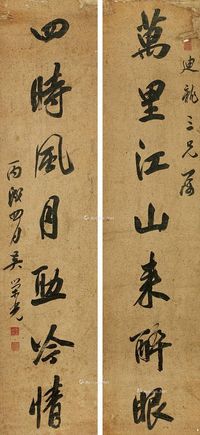 迪龍三兄屬
萬里江山来醉眼
四時風月助吟情
丙戌四月吳榮光